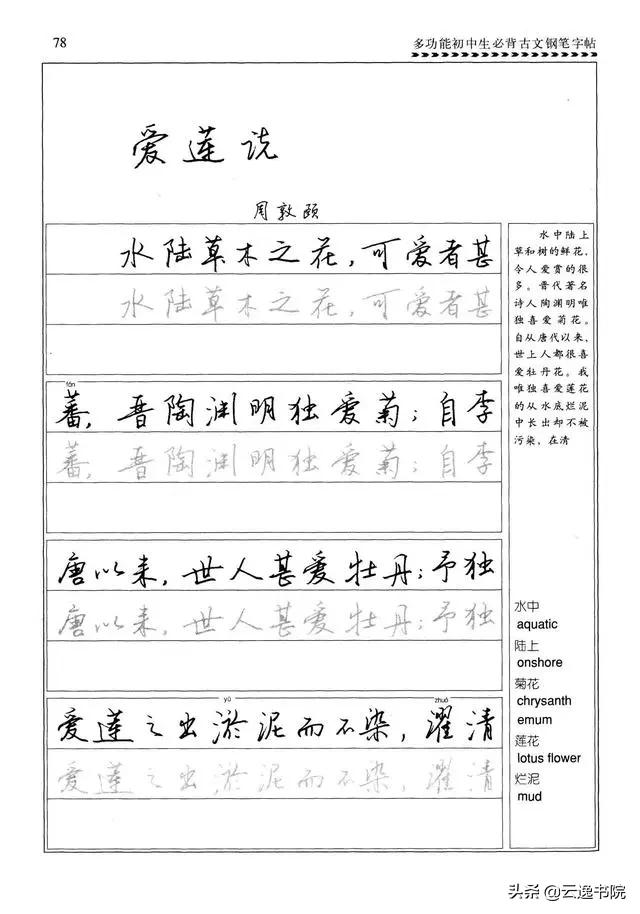 78
多功能初中生必背古文钢笔字帖
爱莲说
周敦颐
水陆草木之花,可爱者甚
水陆草木之花,可爱者甚
fán
蕃,晋陶渊明独爱菊;自李
蕃,晋陶渊明独爱菊;自李
唐以来,世人甚爱牡丹;予独
唐以来,世人甚爱牡丹;予独
yū
zhuó
爱莲之出淤泥而不染,濯清
爱莲之出淤泥而不染,濯清
水中陆上
草和树的鲜花,
令人爱赏的很
多。晋代著名
诗人陶渊明唯
独喜爱菊花。
自从唐代以来,
世上人都很喜
爱牡丹花。我
唯独喜爱莲花
的从水底烂泥
中长出却不被
污染,在清
水中
aquatic
陆上
onshore
菊花
chrysanth
emum
莲花
lotus flower
烂泥
mud
头条 @云逸书院